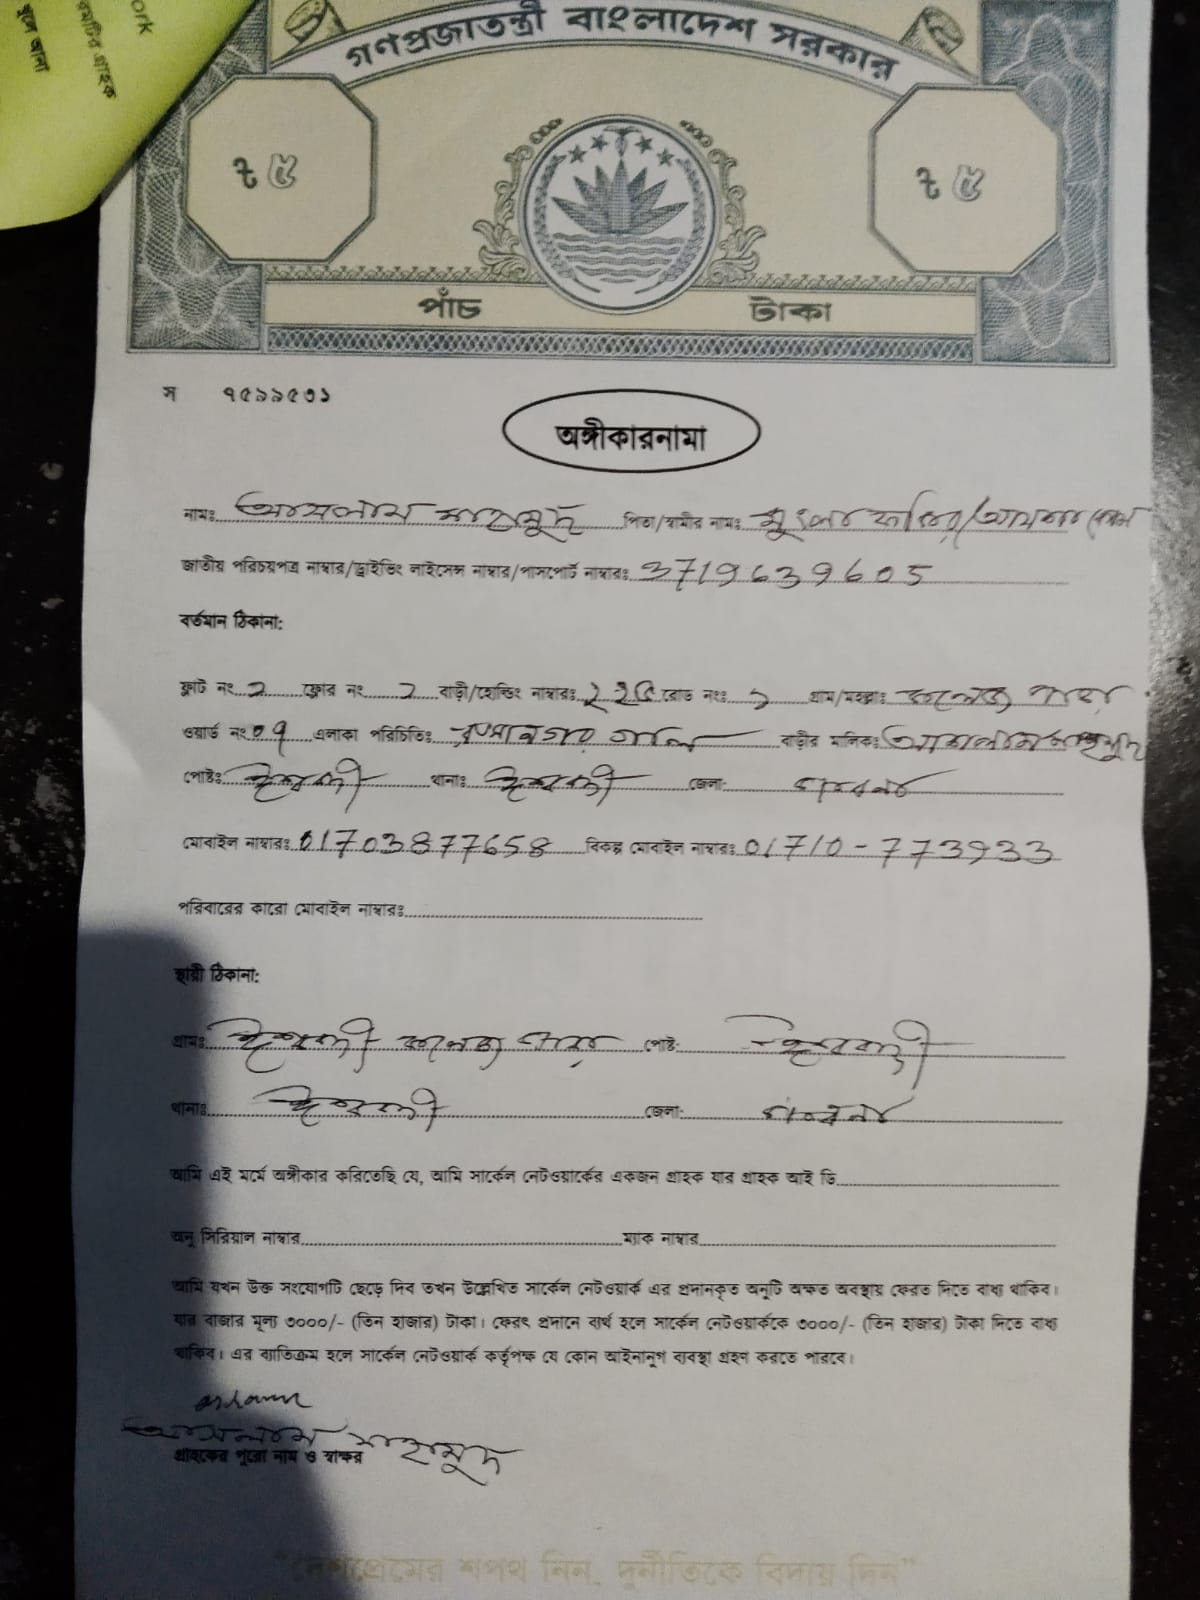 ork
গণপ্রজাতন্ত্রী বাংলাদেশ সরকার
৳ ৫ ৳ ৫
পাঁচ টাকা
স ৭৫৯৯৫৩১
অঙ্গীকারনামা
নামঃ আসলাম মাহামুদ পিতা/স্বামীর নামঃ
জাতীয় পরিচয়পত্র নাম্বার/ড্রাইভিং লাইসেন্স নাম্বার/পাসপোর্ট নাম্বারঃ 3719639605
বর্তমান ঠিকানা:
ফ্লাট নং ২ ফ্লোর নং ২ বাড়ী/হোল্ডিং নাম্বারঃ রোড নংঃ ১ গ্রাম/মহল্লাঃ কলেজ পাড়া
ওয়ার্ড নং ০৭ এলাকা পরিচিতিঃ গলি বাড়ীর মালিকঃ আসলাম মাহামুদ
পোষ্টঃ ঈশ্বরদী থানাঃ ঈশ্বরদী জেলা: পাবনা
মোবাইল নাম্বারঃ 01703877658 বিকল্প মোবাইল নাম্বারঃ 01710-773933
পরিবারের কারো মোবাইল নাম্বারঃ
স্থায়ী ঠিকানা:
গ্রামঃ ঈশ্বরদী কলেজ পাড়া পোষ্ট: ঈশ্বরদী
থানাঃ ঈশ্বরদী জেলা: পাবনা
আমি এই মর্মে অঙ্গীকার করিতেছি যে, আমি সার্কেল নেটওয়ার্কের একজন গ্রাহক যার গ্রাহক আই ডি
অনু সিরিয়াল নাম্বার ম্যাক নাম্বার
আমি যখন উক্ত সংযোগটি ছেড়ে দিব তখন উল্লেখিত সার্কেল নেটওয়ার্ক এর প্রদানকৃত অনুটি অক্ষত অবস্থায় ফেরত দিতে বাধ্য থাকিব।
যার বাজার মূল্য ৩০০০/- (তিন হাজার) টাকা। ফেরৎ প্রদানে ব্যর্থ হলে সার্কেল নেটওয়ার্ককে ৩০০০/- (তিন হাজার) টাকা দিতে বাধ্য
থাকিব। এর ব্যতিক্রম হলে সার্কেল নেটওয়ার্ক কর্তৃপক্ষ যে কোন আইনানুগ ব্যবস্থা গ্রহণ করতে পারবে।
আসলাম মাহামুদ
গ্রাহকের পুরো নাম ও স্বাক্ষর
“দেশপ্রেমের শপথ নিন, দুর্নীতিকে বিদায় দিন”